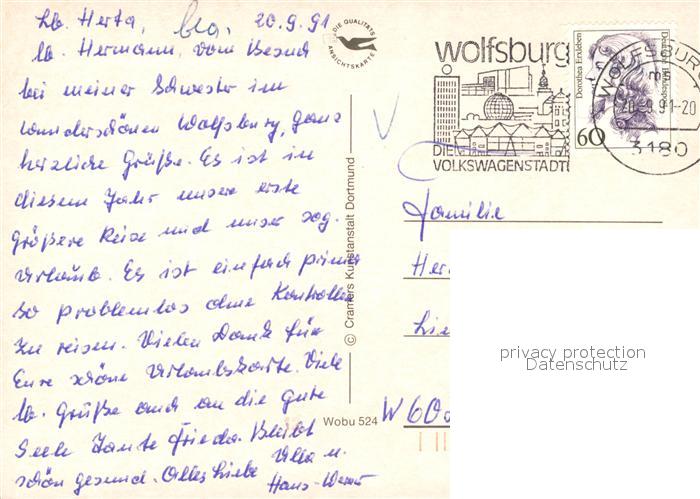 Lb. Herta, 20.9.91
lb. Hermann, vom Besuch
bei meiner Schwester im
wunderschönen Wolfsburg, ganz
herzliche Grüße. Es ist in
diesem Jahr unsere erste
größere Reise und unser sog.
Urlaub. Es ist einfach prima
so problemlos ohne Kontrollen
zu reisen. Vielen Dank für
Eure schöne Urlaubskarte. Viele
lb. Grüße auch an die gute
Seele Tante Frieda. Bleibt
schön gesund. Alles Liebe
Ulla u.
Hans-Werner
DIE QUALITÄTS
ANSICHTSKARTE
© Cramers Kunstanstalt Dortmund
Wobu 524
wolfsburg
DIE
VOLKSWAGENSTADT
Dorothea Erxleben
Deutsche Bundespost
60
WOLFSBURG
20.-9.91-20
3180
Familie
Her
Lie
W 60
privacy protection
Datenschutz